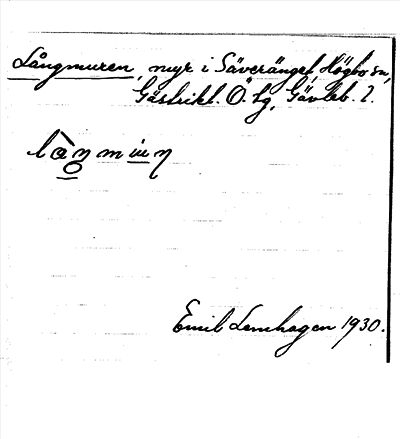 Långmuren, myr i Säveränget, Högbo sn,
Gästrikl. Ö. tg, Gävleb. l.
Emil Lemhagen 1930.